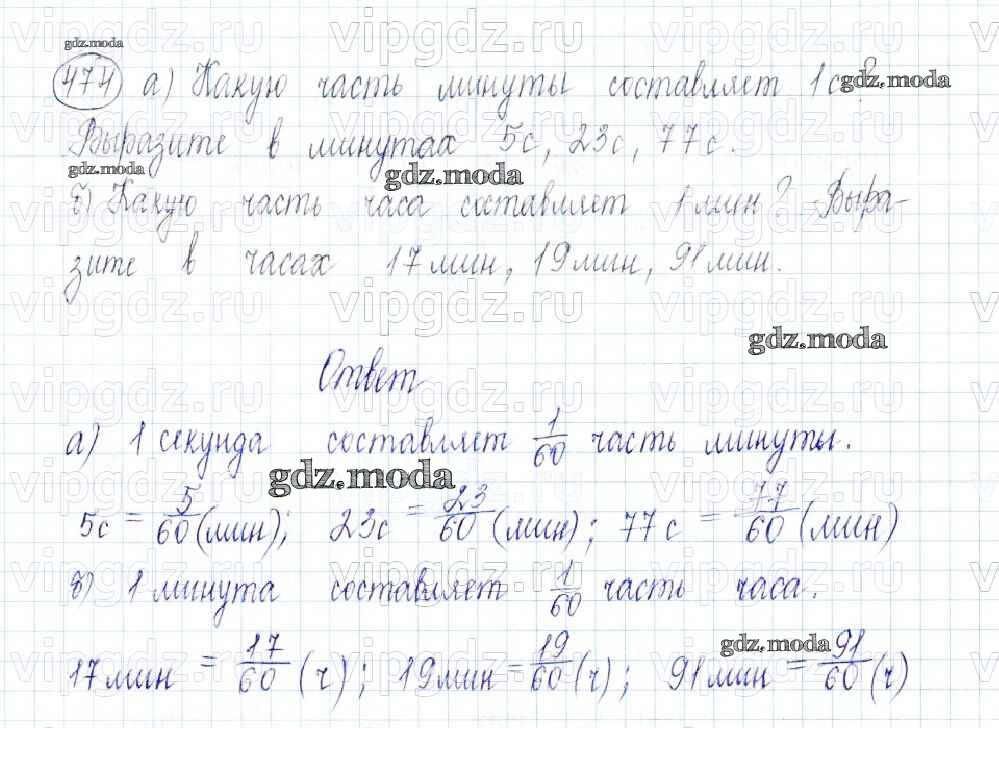 gdz.moda
474 а) Какую часть минуты составляет 1 с?
gdz.moda
Выразите в минутах 5с, 23с, 77с.
gdz.moda
gdz.moda
б) Какую часть часа составляет 1 мин? Выра-
зите в часах 17 мин, 19 мин, 91 мин.
gdz.moda
Ответ
а) 1 секунда составляет 1/60 часть минуты.
gdz.moda
5с = 5/60 (мин); 23с = 23/60 (мин); 77с = 77/60 (мин)
б) 1 минута составляет 1/60 часть часа.
gdz.moda
17 мин = 17/60 (ч); 19 мин = 19/60 (ч); 91 мин = 91/60 (ч)
vipgdz.ru